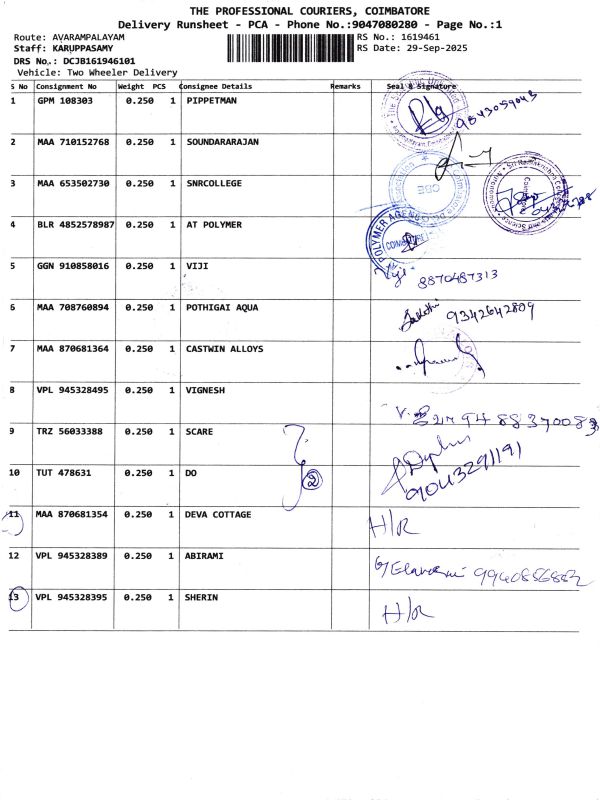 THE PROFESSIONAL COURIERS, COIMBATORE
Delivery Runsheet - PCA - Phone No.:9047080280 - Page No.:1
Route: AVARAMPALAYAM RS No.: 1619461
Staff: KARUPPASAMY RS Date: 29-Sep-2025
DRS No.: DCJB161946101
Vehicle: Two Wheeler Delivery
S No Consignment No Weight PCS Consignee Details Remarks Seal & Signature
1 GPM 108303 0.250 1 PIPPETMAN
2 MAA 710152768 0.250 1 SOUNDARARAJAN
3 MAA 653502730 0.250 1 SNRCOLLEGE
4 BLR 4852578987 0.250 1 AT POLYMER
5 GGN 910858016 0.250 1 VIJI 8870487313
6 MAA 708760894 0.250 1 POTHIGAI AQUA 9342642809
7 MAA 870681364 0.250 1 CASTWIN ALLOYS
8 VPL 945328495 0.250 1 VIGNESH 9488370083
9 TRZ 56033388 0.250 1 SCARE 9043291191
10 TUT 478631 0.250 1 DO 2
11 MAA 870681354 0.250 1 DEVA COTTAGE H/R
12 VPL 945328389 0.250 1 ABIRAMI
13 VPL 945328395 0.250 1 SHERIN H/R